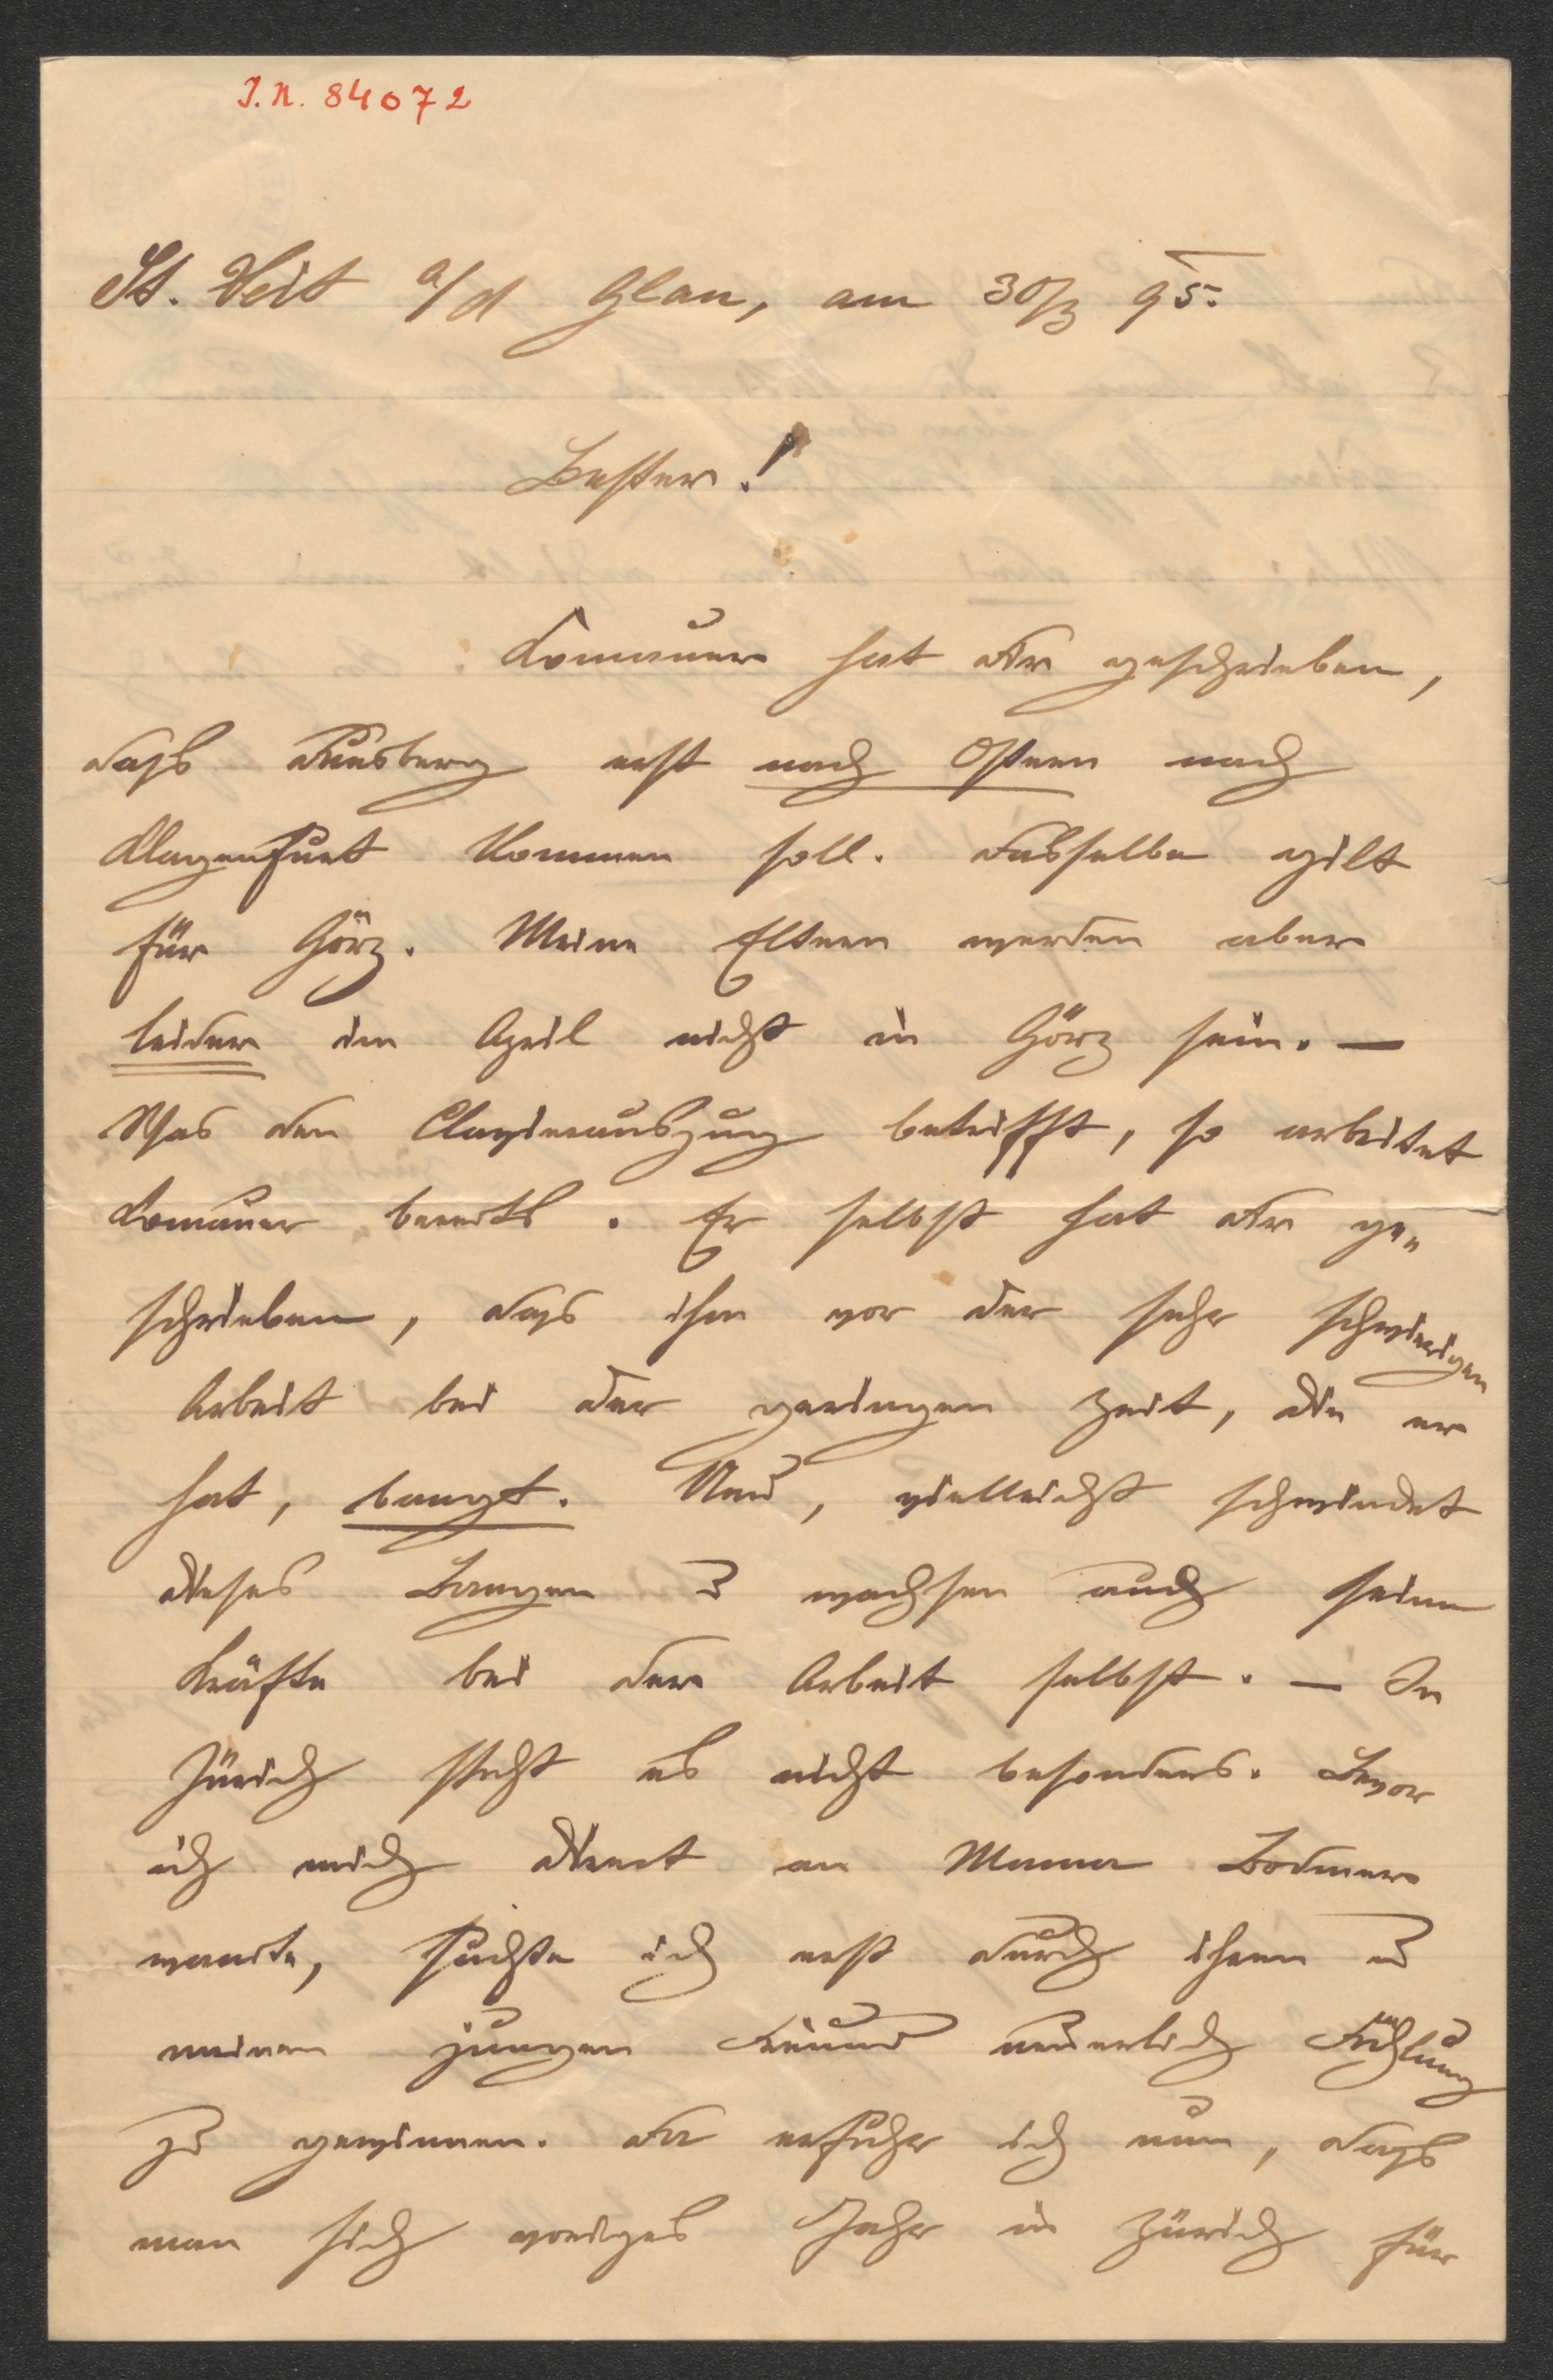 I.N. 84072
St. Veit a/d Glan, am 30/3 95.
Bester!
Komauer hat Dir geschrieben,
dass erst nach Ostern nach
Klagenfurt kommen soll. Dasselbe gilt
für Görz. Meine Eltern werden aber
leider im April nicht in Görz sein. —
Was den Clavierauszug betrifft, so arbeitet
Komauer bereits. Er selbst hat Dir ge-
schrieben, dass ihm vor der sehr schwierigen
Arbeit bei der geringen Zeit, die er
hat, bangt. Nun, vielleicht schwindet
dieses Bangen u wachsen auch seine
Kräfte bei der Arbeit selbst. — In
Zürich steht es nicht besonders. Bevor
ich mich direct an Mama Bodmer
wandte, suchte ich erst durch ihren u
meinen jungen Freund neuerlich Fühlung
zu gewinnen. Da erfuhr ich nun, dass
man sich voriges Jahr in Zürich für